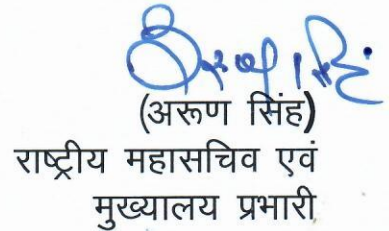 (अरूण सिंह)
राष्ट्रीय महासचिव एवं
मुख्यालय प्रभारी